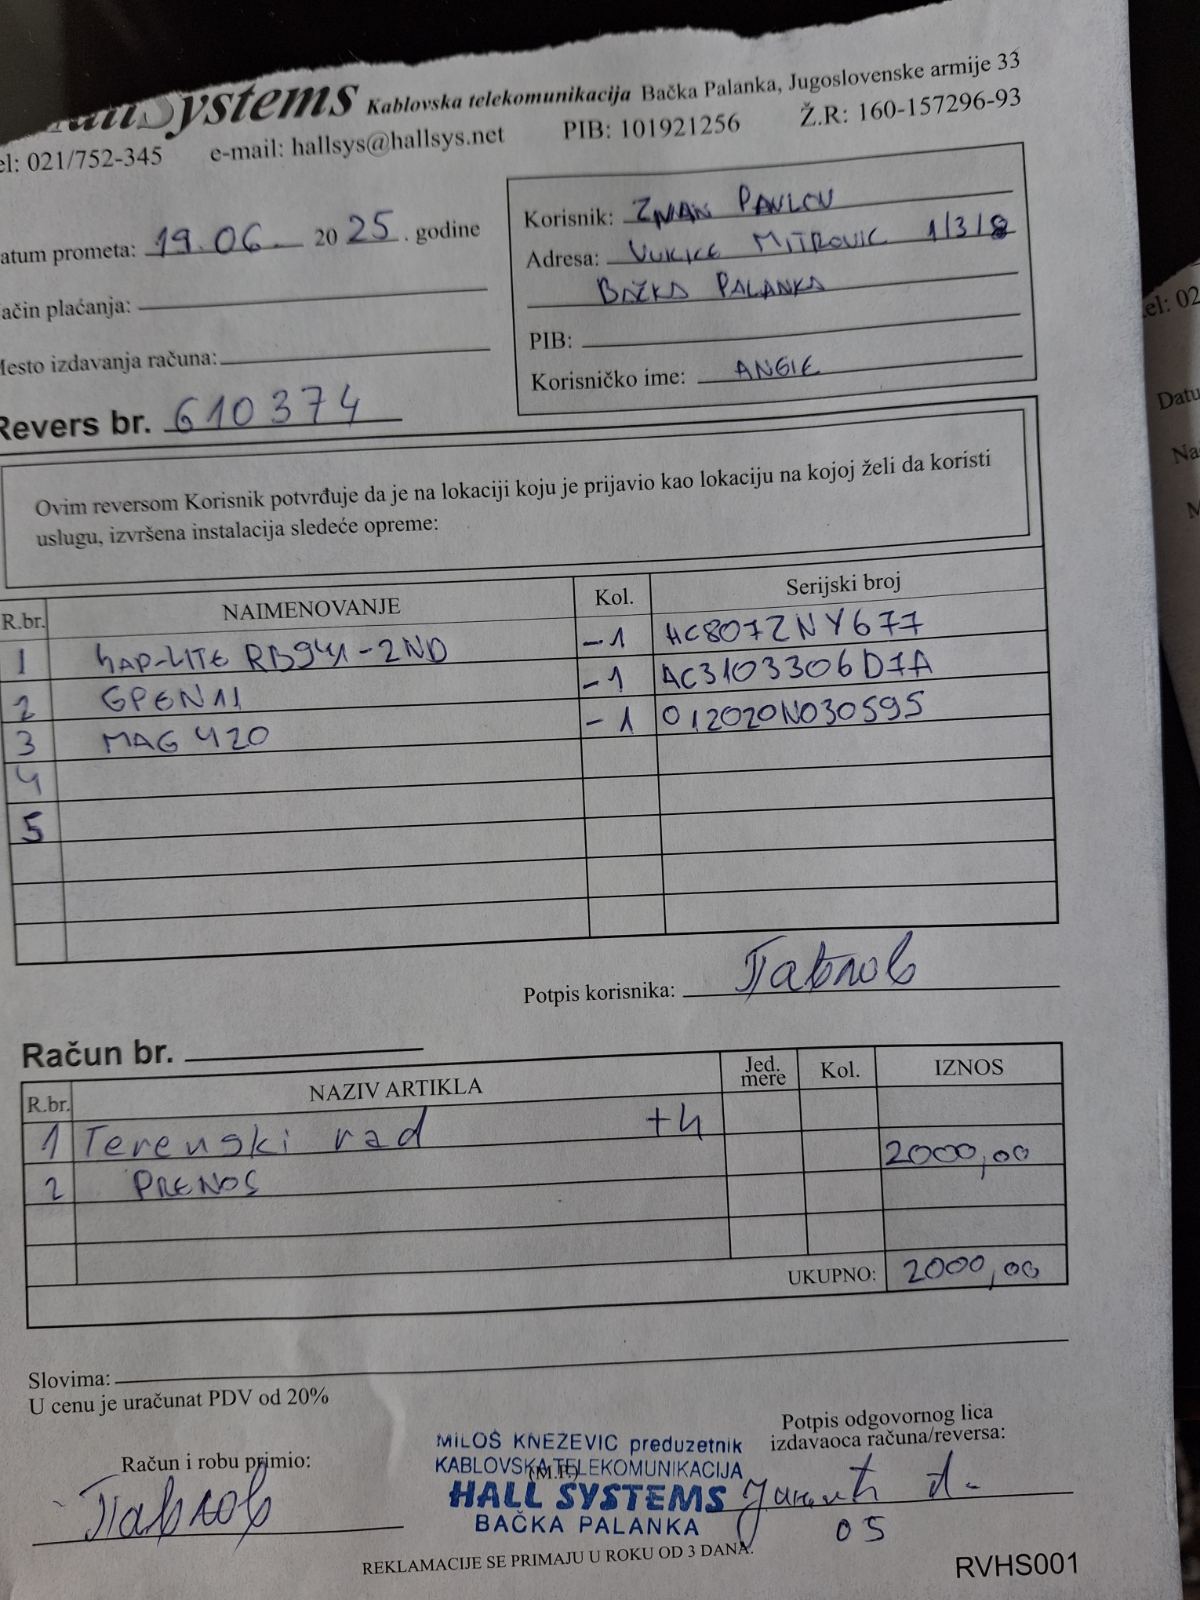 Systems Kablovska telekomunikacija Bačka Palanka, Jugoslovenske armije 33
el: 021/752-345 e-mail: hallsys@hallsys.net PIB: 101921256 Ž.R: 160-157296-93
atum prometa: 19.06 2025. godine
ačin plaćanja:
esto izdavanja računa:
Revers br. 610374
Korisnik: PAVLOV
Adresa: VUKICE MITROVIC 1/3/8
BAČKA PALANKA
PIB:
Korisničko ime: ANGIE
Ovim reversom Korisnik potvrđuje da je na lokaciji koju je prijavio kao lokaciju na kojoj želi da koristi
uslugu, izvršena instalacija sledeće opreme:
R.br. NAIMENOVANJE Kol. Serijski broj
1 hAP-LITE RB941-2ND -1 HC807ZNY677
2 GPEN11 -1 AC3103306D7A
3 MAG 420 -1 012020N030595
4
5
Potpis korisnika: Павлов
Račun br.
R.br. NAZIV ARTIKLA Jed. mere Kol. IZNOS
1 Terenski rad +h
2 PRENOS 2000,00
UKUPNO: 2000,00
Slovima:
U cenu je uračunat PDV od 20%
Račun i robu primio:
Павлов
MILOŠ KNEŽEVIC preduzetnik
KABLOVSKA TELEKOMUNIKACIJA
(M.P.)
HALL SYSTEMS
BAČKA PALANKA
Potpis odgovornog lica
izdavaoca računa/reversa:
05
REKLAMACIJE SE PRIMAJU U ROKU OD 3 DANA.
RVHS001
el: 02
Datu
Na
M